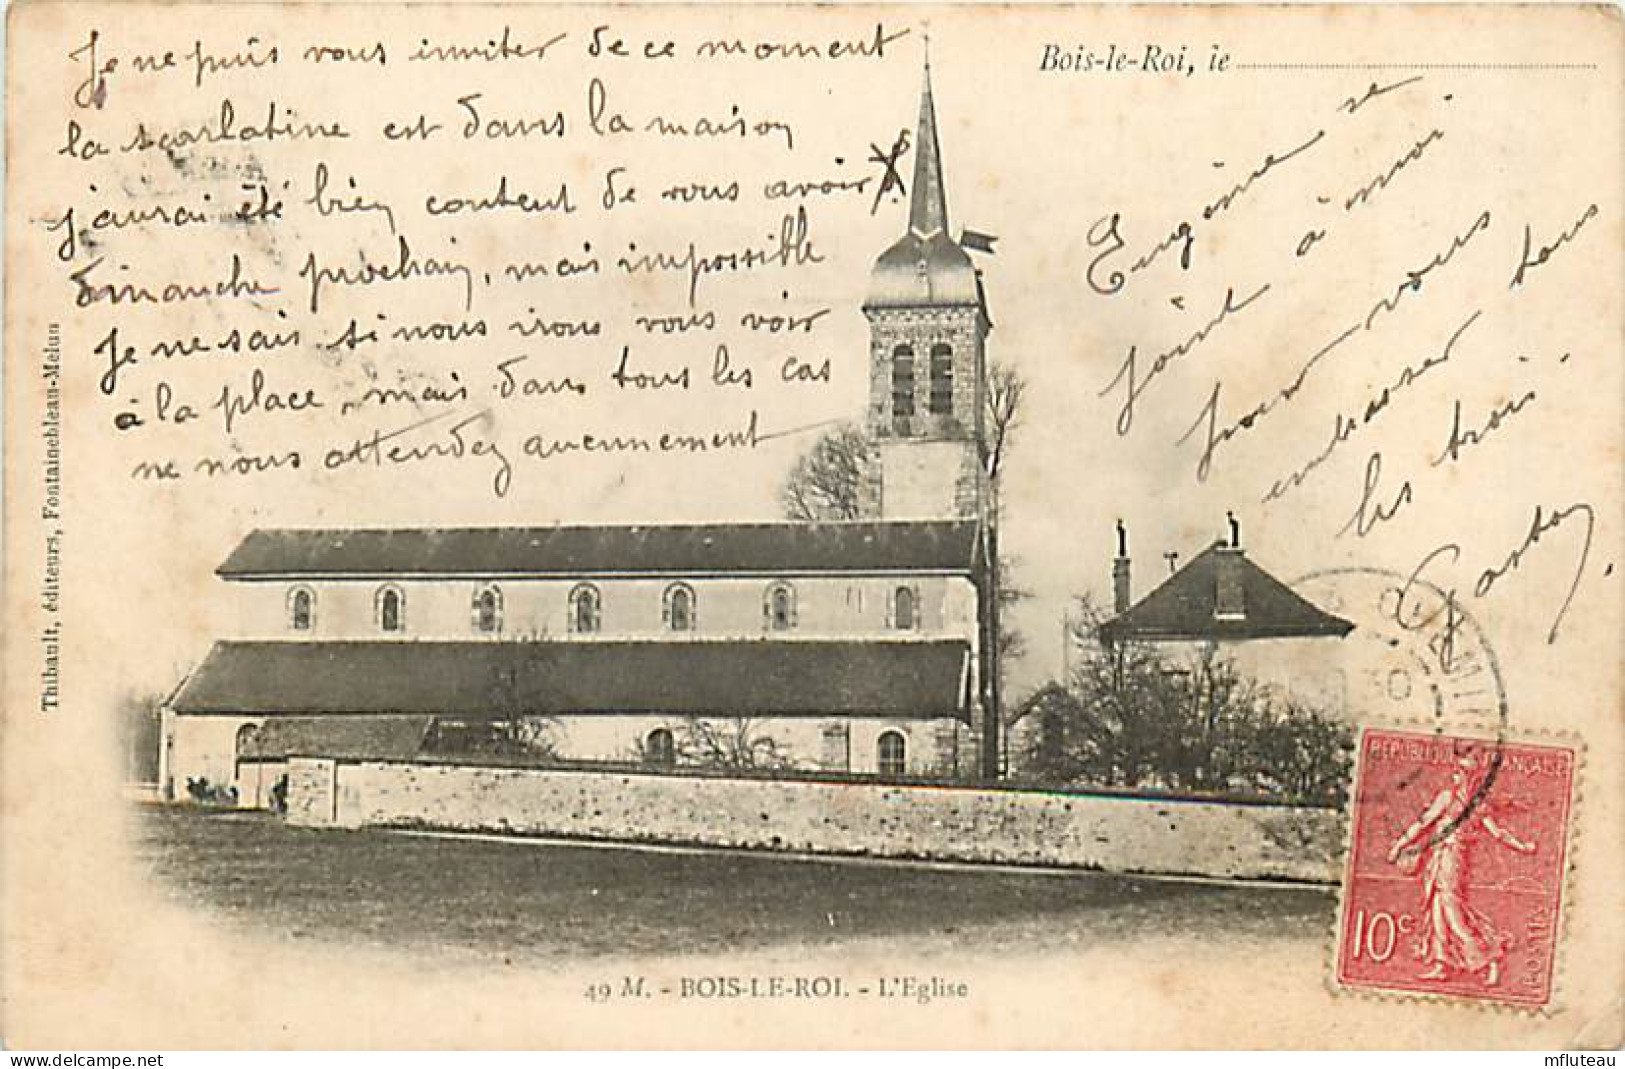 Je ne puis vous inviter de ce moment
la scarlatine est dans la maison
j'aurai été bien content de vous avoir
dimanche prochain, mais impossible
Je ne sais si nous irons vous voir
à la place, mais dans tous les cas
ne nous attendez aucunement
Bois-le-Roi, le
Eugénie se
joint à moi
pour vous
embrasser tous
les trois.
Gaston
Thibault, éditeurs, Fontainebleau-Melun
REPUBLIQUE FRANÇAISE
10c
POSTES
49 M. - BOIS-LE-ROI. - L'Eglise
mfluteau